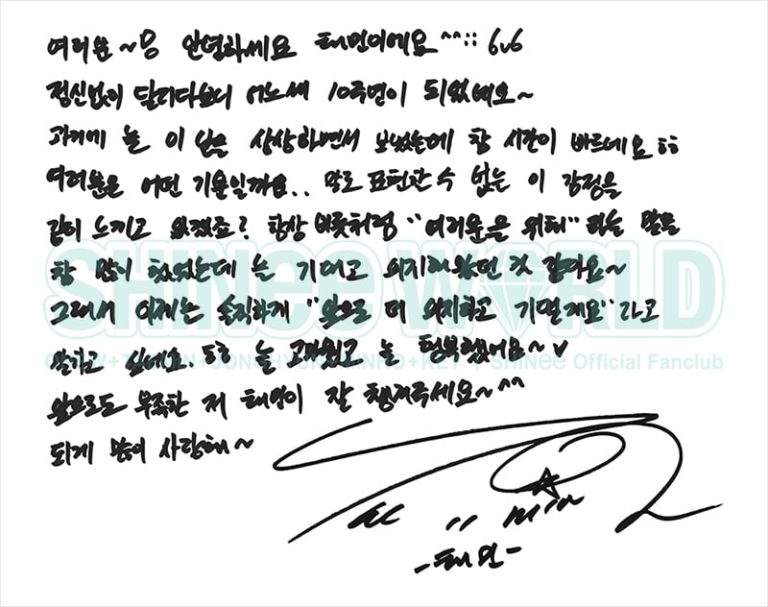 여러분~용 안녕하세요 태민이에요^^:: 6v6
정신없이 달리다보니 어느새 10주년이 되었네요~
과거에 늘 이 날을 상상하면서 보냈는데 참 시간이 빠르네요ㅎㅎ
여러분은 어떤 기분일까요.. 말로 표현할 수 없는 이 감정을
같이 느끼고 있겠죠? 항상 버릇처럼 "여러분을 위해" 라는 말을
참 많이 했었는데 늘 기대고 의지해왔던 것 같아요~
그래서 이제는 솔직하게 "앞으로 더 의지하고 기댈게요"라고
말하고 싶네요. 또한 늘 고마웠고 늘 행복했어요~♥
앞으로도 부족한 저 태민이 잘 챙겨주세요~^^
되게 많이 사랑해~
-태민-
SHINee WORLD
ONEW+TAEMIN+JONGHYUN+MINHO+KEY | SHINee Official Fanclub